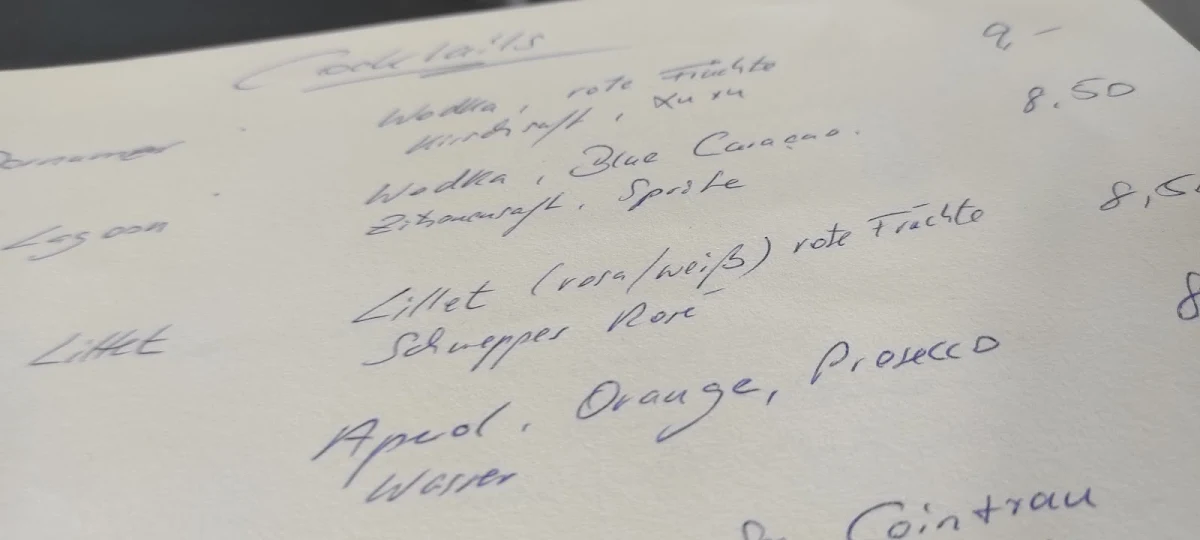 Cocktails
Wodka, rote Früchte 9,-
Kirschsaft, Xu xu
Lagoon Wodka, Blue Curaçao. 8.50
Zitronensaft, Sprite
Lillet Lillet (rosa/weiß) rote Früchte 8,50
Schweppes Rosé
Aperol, Orange, Prosecco 8
Wasser
Cointrau